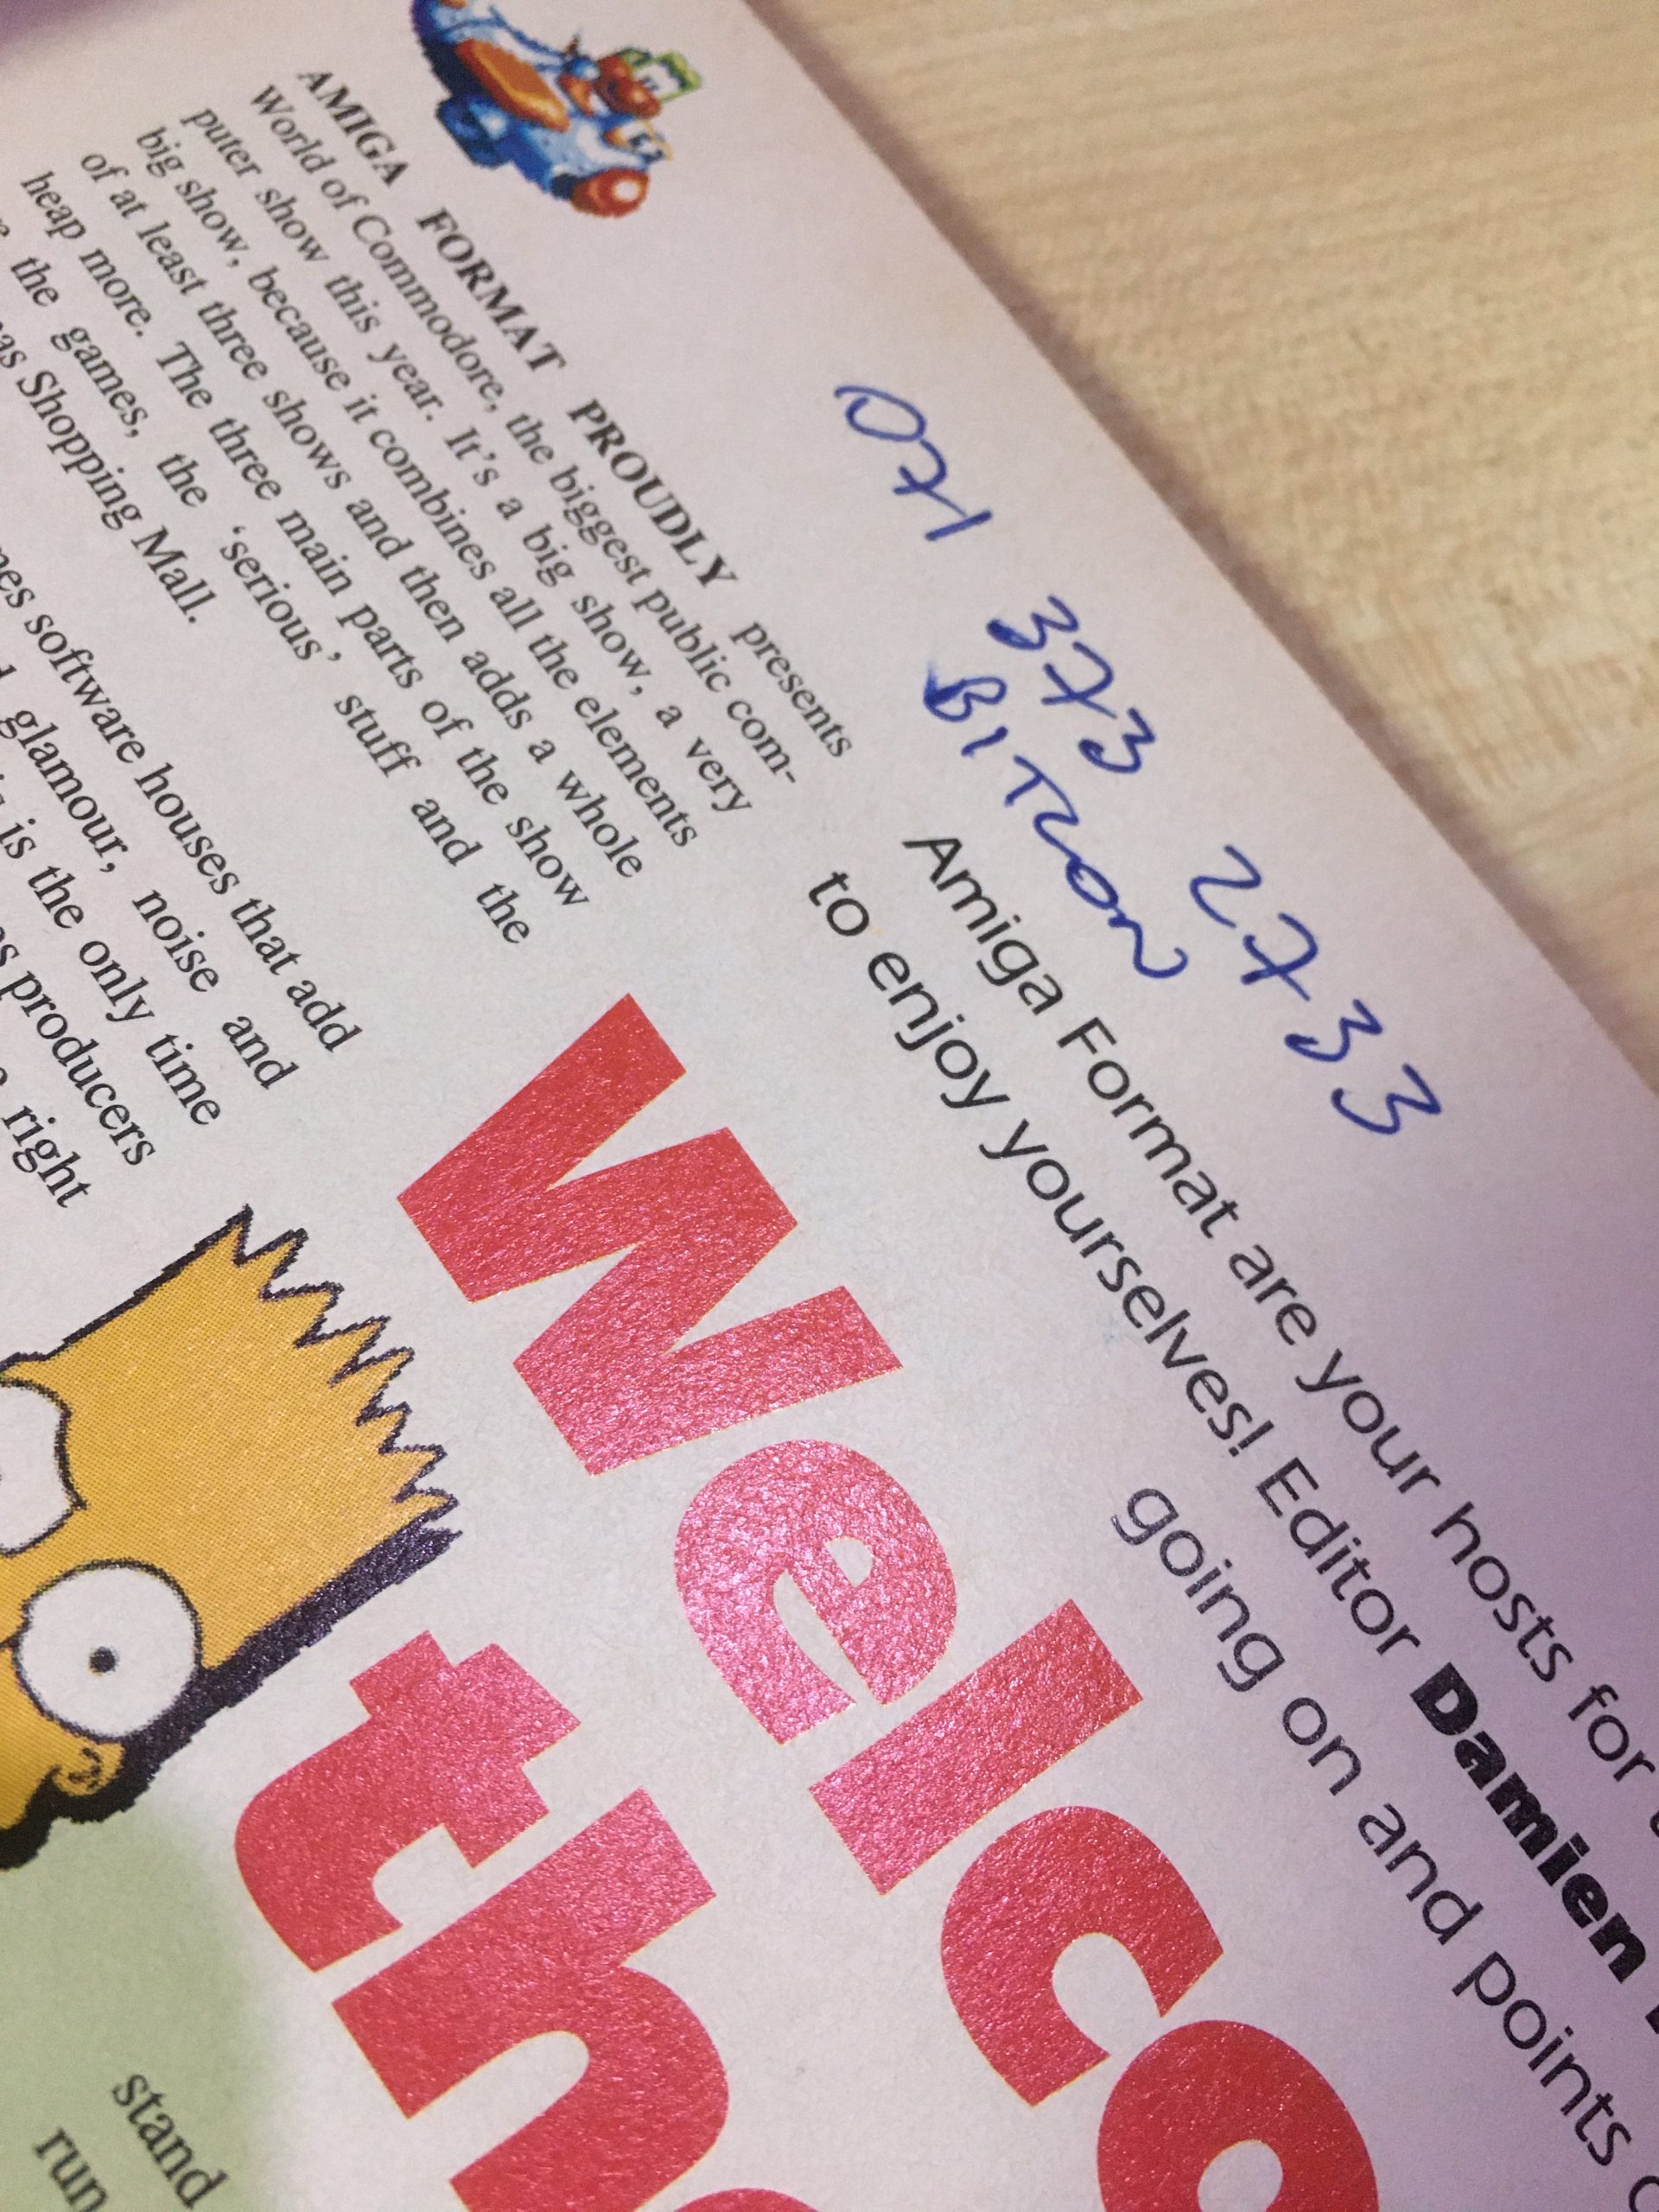 071 373 2733
BITRON
AMIGA FORMAT PROUDLY presents
World of Commodore, the biggest public com-
puter show this year. It's a big show, a very
big show, because it combines all the elements
of at least three shows and then adds a whole
heap more. The three main parts of the show
the games, the 'serious' stuff and the
Shopping Mall.
software houses that add
glamour, noise and
is the only time
producers
right
Amiga Format are your hosts for
to enjoy yourselves! Editor Damien
going on and points
Welco
the
stand
run